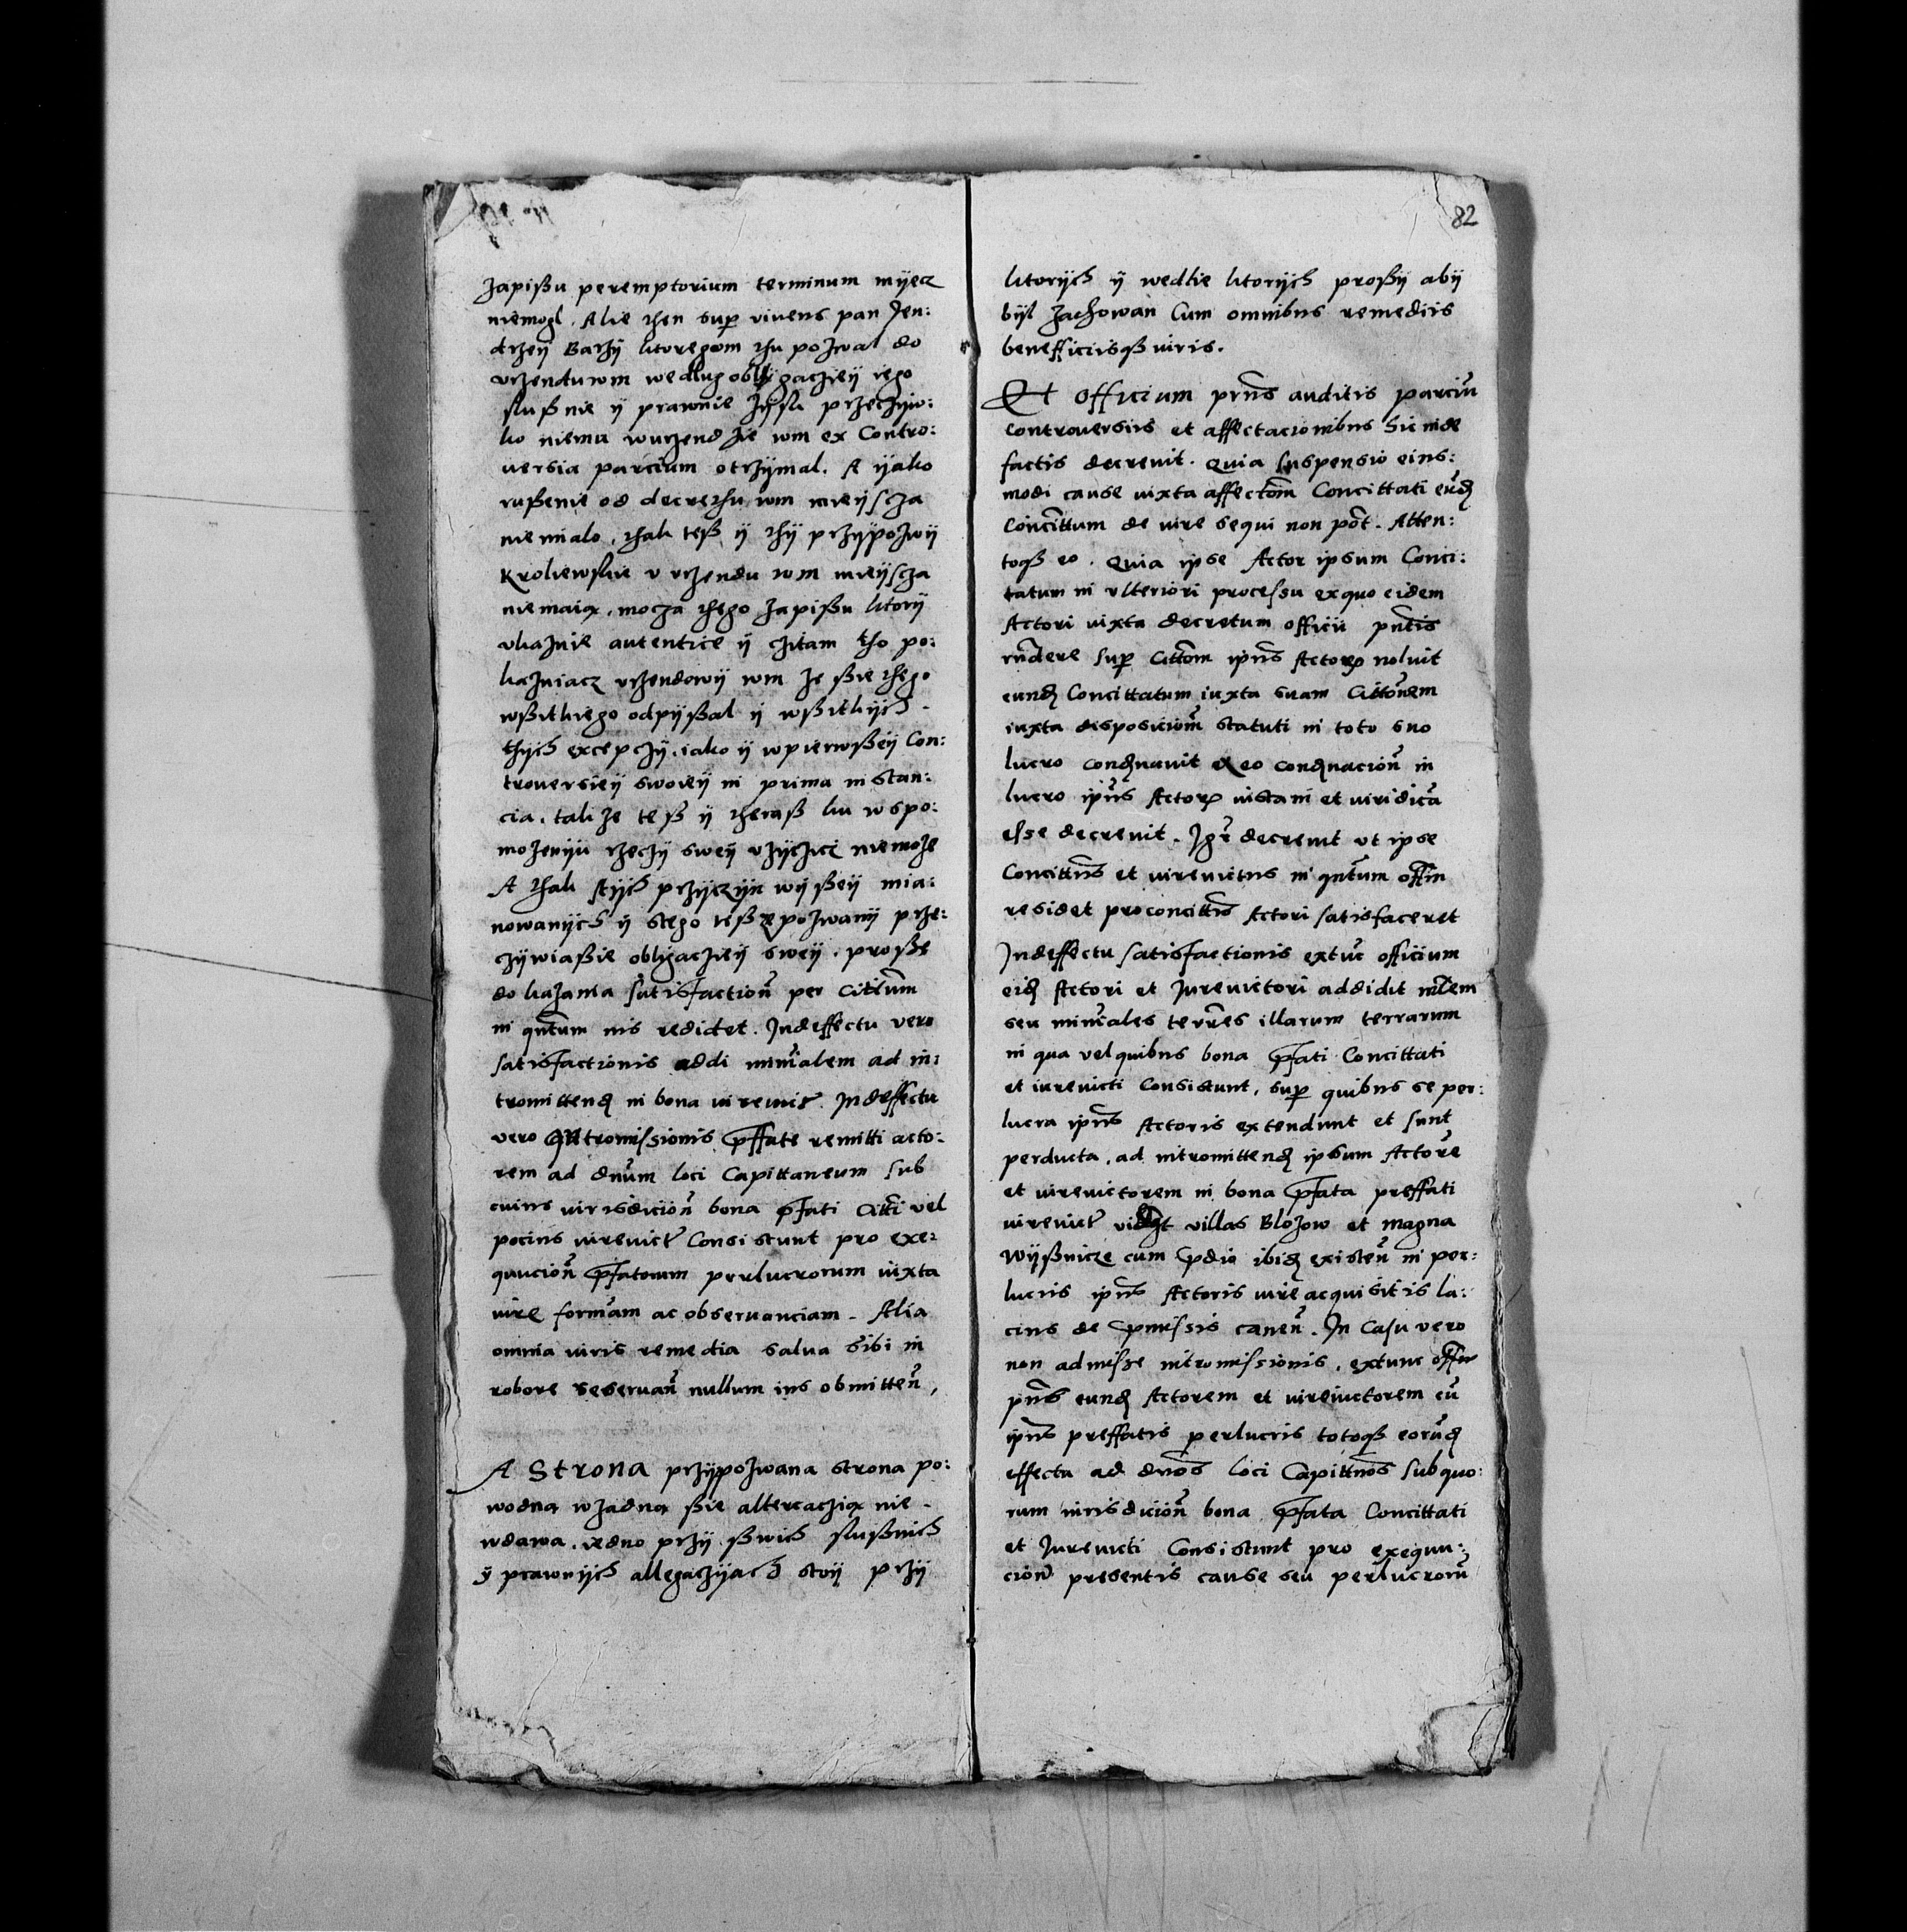 zapißu peremptorium terminum myecz
niemogl. Alie then sup viuens pan Jen:
drzeÿ Barzÿ ktoregom thu pozwal do
vrzenduwm według obligacziey iego
slußnie ÿ prawnie zÿsk przeczyw:
ko niema wurzendzie wm ex Contro:
uersia parcium otrzÿmal. A ÿako
rußenie od decrethu wm mieÿscza
niemialo, thak teß ÿ thÿ przÿpozwÿ
Kroliewskie v vrzendu wm mieÿscza
niemaią, mocza thego zapißu ktorÿ
vkaznie autentice ÿ czitam tho po:
kazuiacz vrzendowÿ wm ze ßie thego
wßitkiego odpÿßal ÿ wßitkÿch
thÿch excepczÿ, iako ÿ wpierwßeÿ Con:
trouersieÿ sworeÿ in prima instan:
cia. tak ze teß ÿ theraß ku wspo:
mozenÿu rzeczÿ sweÿ vzÿczicz niemoze
A thak stÿch przÿczÿn wÿßeÿ mia:
nowanÿch ÿ stego teß pozwanÿ prze:
czÿwiaßie obligaczieÿ sweÿ. proßę
do kazania satisfaction per Cittum
in qntum nis redidet. Indeffectu vero
satisfactionis addi minialem ad in:
tromittend in bona iureuict. Indeffectu
vero Intromissionis pffate remitti acto:
rem ad dnum loci Capittaneum sub
cuius iurisdicion bona pfati Citti vel
pocius iureuict Consistunt pro exe:
quucion pfatorum perlucrorum iuxta
iure formam ac obseruanciam. Alia
omnia iuris remedia salua sibi in
robore reseruan nullum ius obmitten,
A Strona przÿpozwana strona po:
wodna wzadna ßie altercaczią nie
wdawa. iedno przÿ ßwich slußnich
ÿ prawnÿch allegaczÿach stoÿ przÿ
82
ktorÿch ÿ wedlie ktorÿch proßÿ abÿ
bÿl zachowan Cum omnibus remediis
benefficiisqß iuris.
Et Officium prns auditis parciu
controuersiis et affectacionibus Sic inde
factis decreuit. Quia suspensio eius:
modi cause iuxta affectom Concittati eud
Concittum de iure sequi non pot. Atten:
toqß eo. Quia ipse Actor ipsum Conci:
tatum in vlteriori processu exquo eidem
Actori iuxta decretum officii pntis
rndere sup Cittom ipius Actorp noluit
eund Concittatum iuxta suam Cittonem
iuxta disposiciom statuti in toto suo
lucro condnauit et eo condnacion in
lucro ipius Actorp iustam et iuridica
esse decreuit. Igr decreuit vt ipse
Concittus et iureuictus in qntum offm
residet proconcitto Actori satisfaceret
Indeffectu satisfactionis extuc officium
eid Actori et Jureuictori addidit mlem
seu miniales terres illarum terrarum
in qua vel quibus bona pfati Concittati
et iureuicti Consistunt, sup quibus se per:
lucra ipius Actoris extendunt et sunt
perducta, ad intromittend ipsum Actore
et iureuictorem in bona pfata preffati
iureuict videlt villas Blozow et magna
Wÿßnicze cum pdio ibid existen in per:
lucris ipius Actoris iure acquisitis la:
cius de pmissis canen. In Casu vero
non admisse intromissionis, extunc offm
pns eund Actorem et iureiuctorem cu
ipius preffatis perlucris totoqß eorud
effectu ad dnos loci Capittnos subquo:
rum iurisdicion bona pfata Concittati
et Jureuicti Consistunt pro exequu:
cion presentis cause seu perlucroru